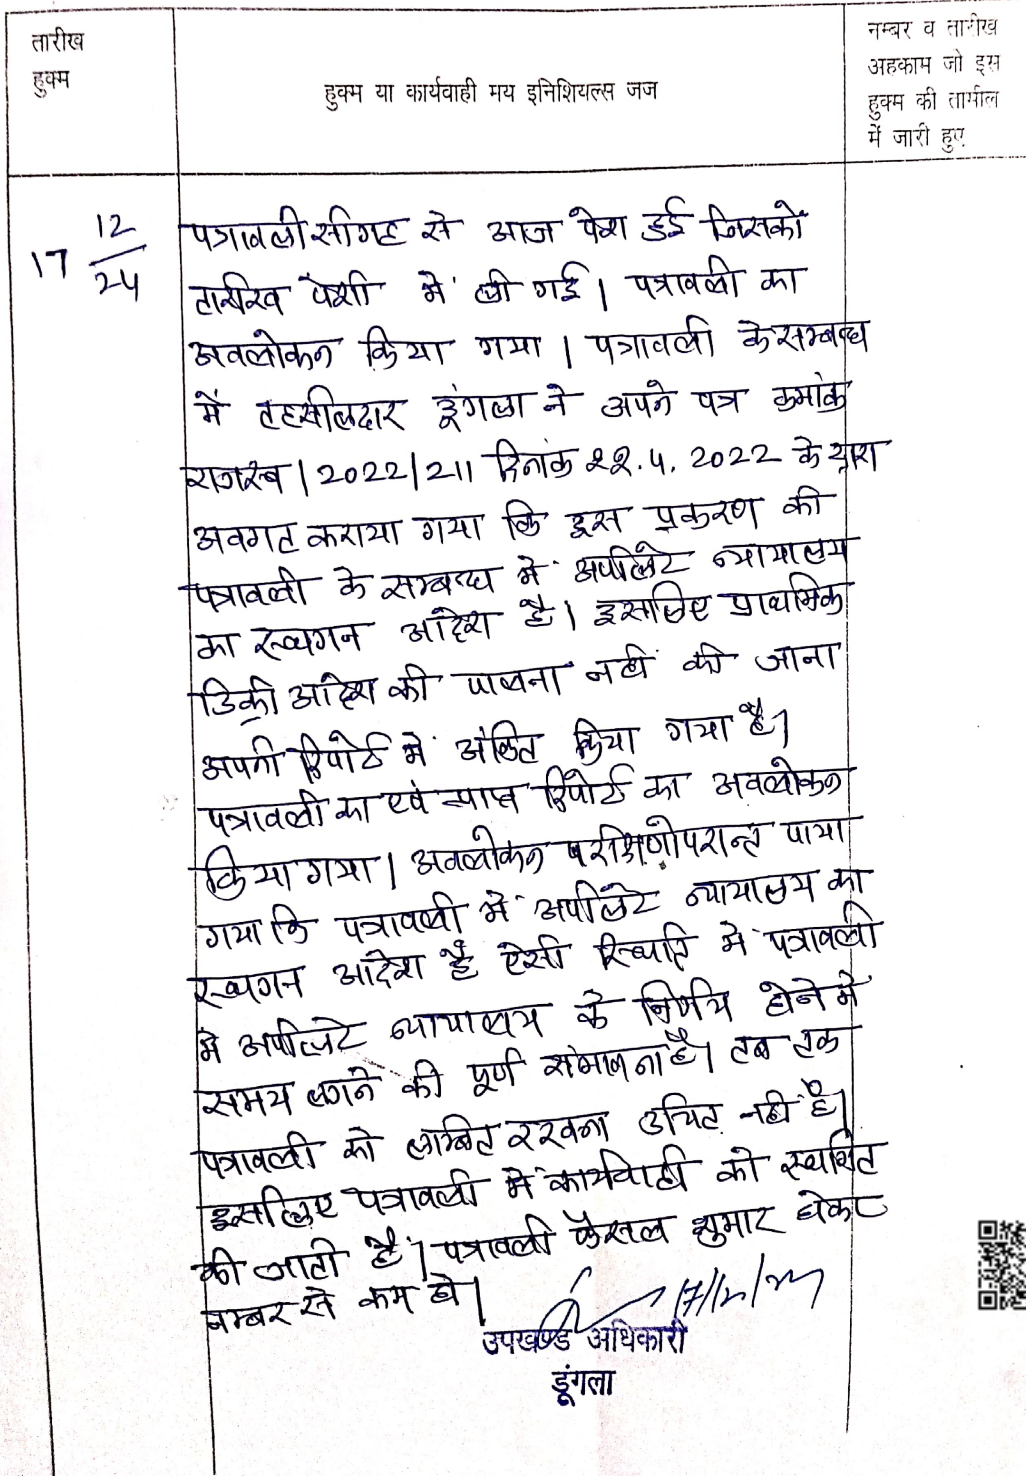 तारीख
हुक्म
हुक्म या कार्यवाही मय इनिशियल्स जज
नम्बर व तारीख
अहकाम जो इस
हुक्म की तामील
में जारी हुए
17 12/24
पत्रावली सीगह से आज पेश हुई जिसको
तारीख पेशी में ली गई। पत्रावली का
अवलोकन किया गया। पत्रावली के सम्बन्ध
में तहसीलदार डूंगला ने अपने पत्र क्रमांक
राजस्व/2022/211 दिनांक 22.4.2022 के द्वारा
अवगत कराया गया कि इस प्रकरण की
पत्रावली के सम्बन्ध में अपीलेट न्यायालय
का स्थगन आदेश है। इसलिए प्राथमिक
डिक्री आदेश की पालना नहीं की जाना
अपनी रिपोर्ट में अंकित किया गया है।
पत्रावली का एवं प्राप्त रिपोर्ट का अवलोकन
किया गया। अवलोकन परीक्षणोपरान्त पाया
गया कि पत्रावली में अपीलेट न्यायालय का
स्थगन आदेश है ऐसी स्थिति में पत्रावली
में अपीलेट न्यायालय के निर्णय होने में
समय लगने की पूर्ण संभावना है। तब तक
पत्रावली को लम्बित रखना उचित नहीं है।
इसलिए पत्रावली में कार्यवाही को स्थगित
की जाती है। पत्रावली फैसल शुमार होकर
नम्बर से कम हो।
17/12/24
उपखण्ड अधिकारी
डूंगला